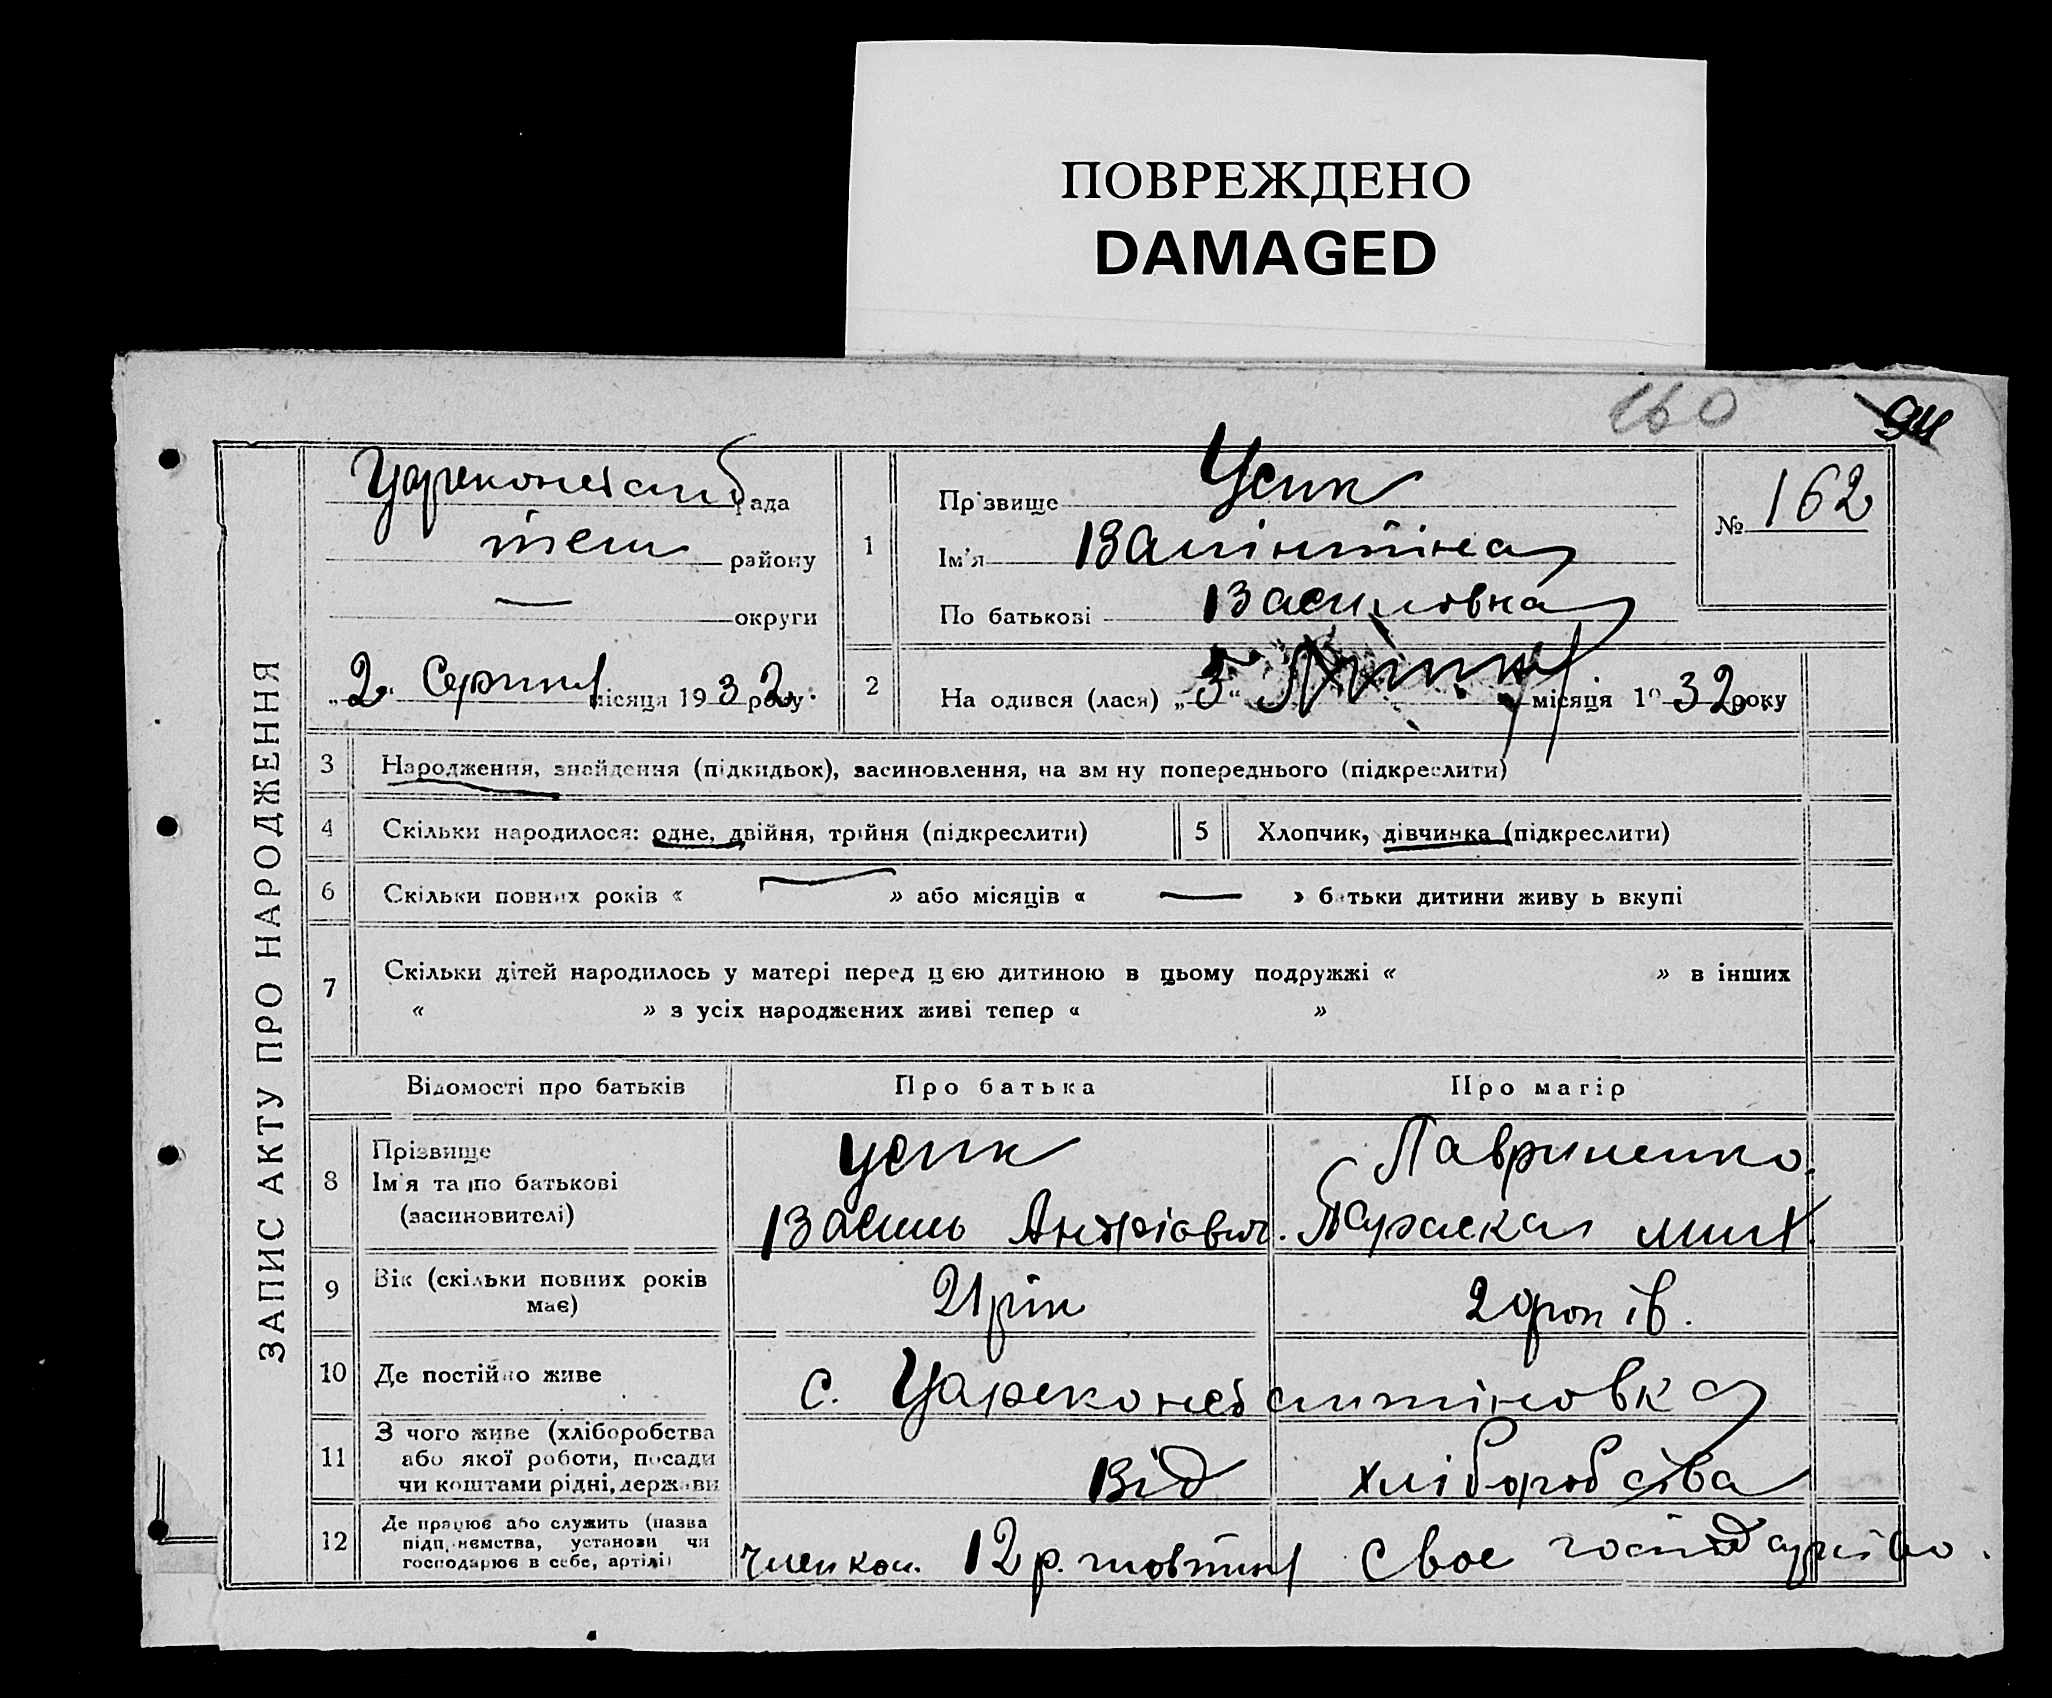 ПОВРЕЖДЕНО
DAMAGED
160
94
ЗАПИС АКТУ ПРО НАРОДЖЕННЯ
Цареконст рада
району
— округи
„2“ Серпня місяця 1932 року
1
Прізвище Усик
Ім'я Валінтіна
По батькові Василовна
№ 162
2
На одився (лася) „5“ місяця 1932 року
3 Народження, знайдення (підкидьок), засиновлення, на зм ну попереднього (підкреслити)
4 Скільки народилося: одне, двійня, трійня (підкреслити)
5 Хлопчик, дівчинка (підкреслити)
6 Скільки повних років « — » або місяців « — » батьки дитини живу ь вкупі
7 Скільки дітей народилось у матері перед цією дитиною в цьому подружжі « » в інших
« » з усіх народжених живі тепер « »
Відомості про батьків Про батька Про матір
8 Прізвище
Ім'я та по батькові
(засиновителі)
Усик
Василь Андріович.
Лавриненко
Параска Мит.
9 Вік (скільки повних років
має)
21 рік
20 років.
10 Де постійно живе
с. Цареконстантіновка
11 З чого живе (хліборобства
або якої роботи, посади
чи коштами рідні, держави
Від хліборобства
12 Де працює або служить (назва
підприємства, установи чи
господарює в себе, артілі)
член ком. 12 р. жовтня своє господарство.